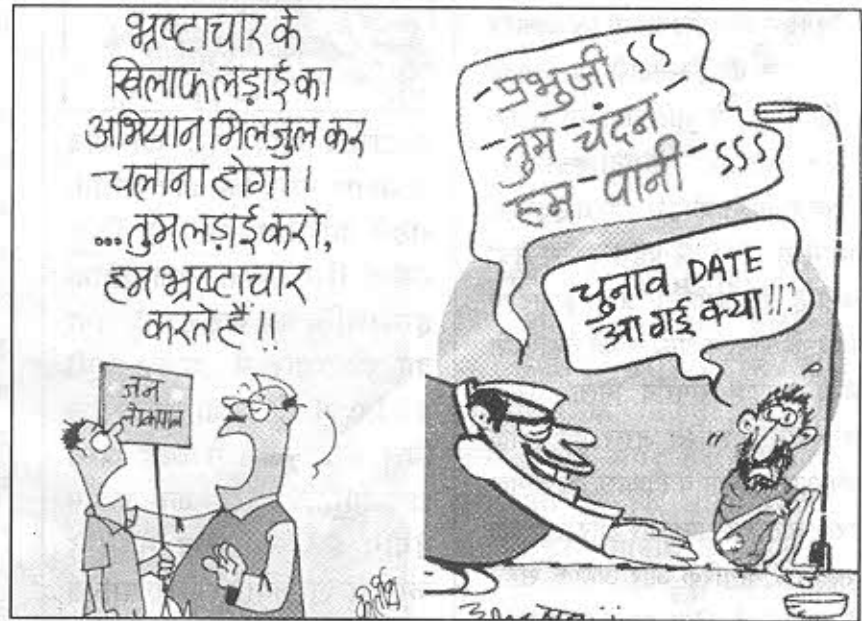 भ्रष्टाचार के
खिलाफ लड़ाई का
अभियान मिलजुल कर
चलाना होगा।
...तुम लड़ाई करो,
हम भ्रष्टाचार
करते हैं!!
जन
लोकपाल
प्रभुजी SS
तुम चंदन
हम पानी SSS
चुनाव DATE
आ गई क्या!!?